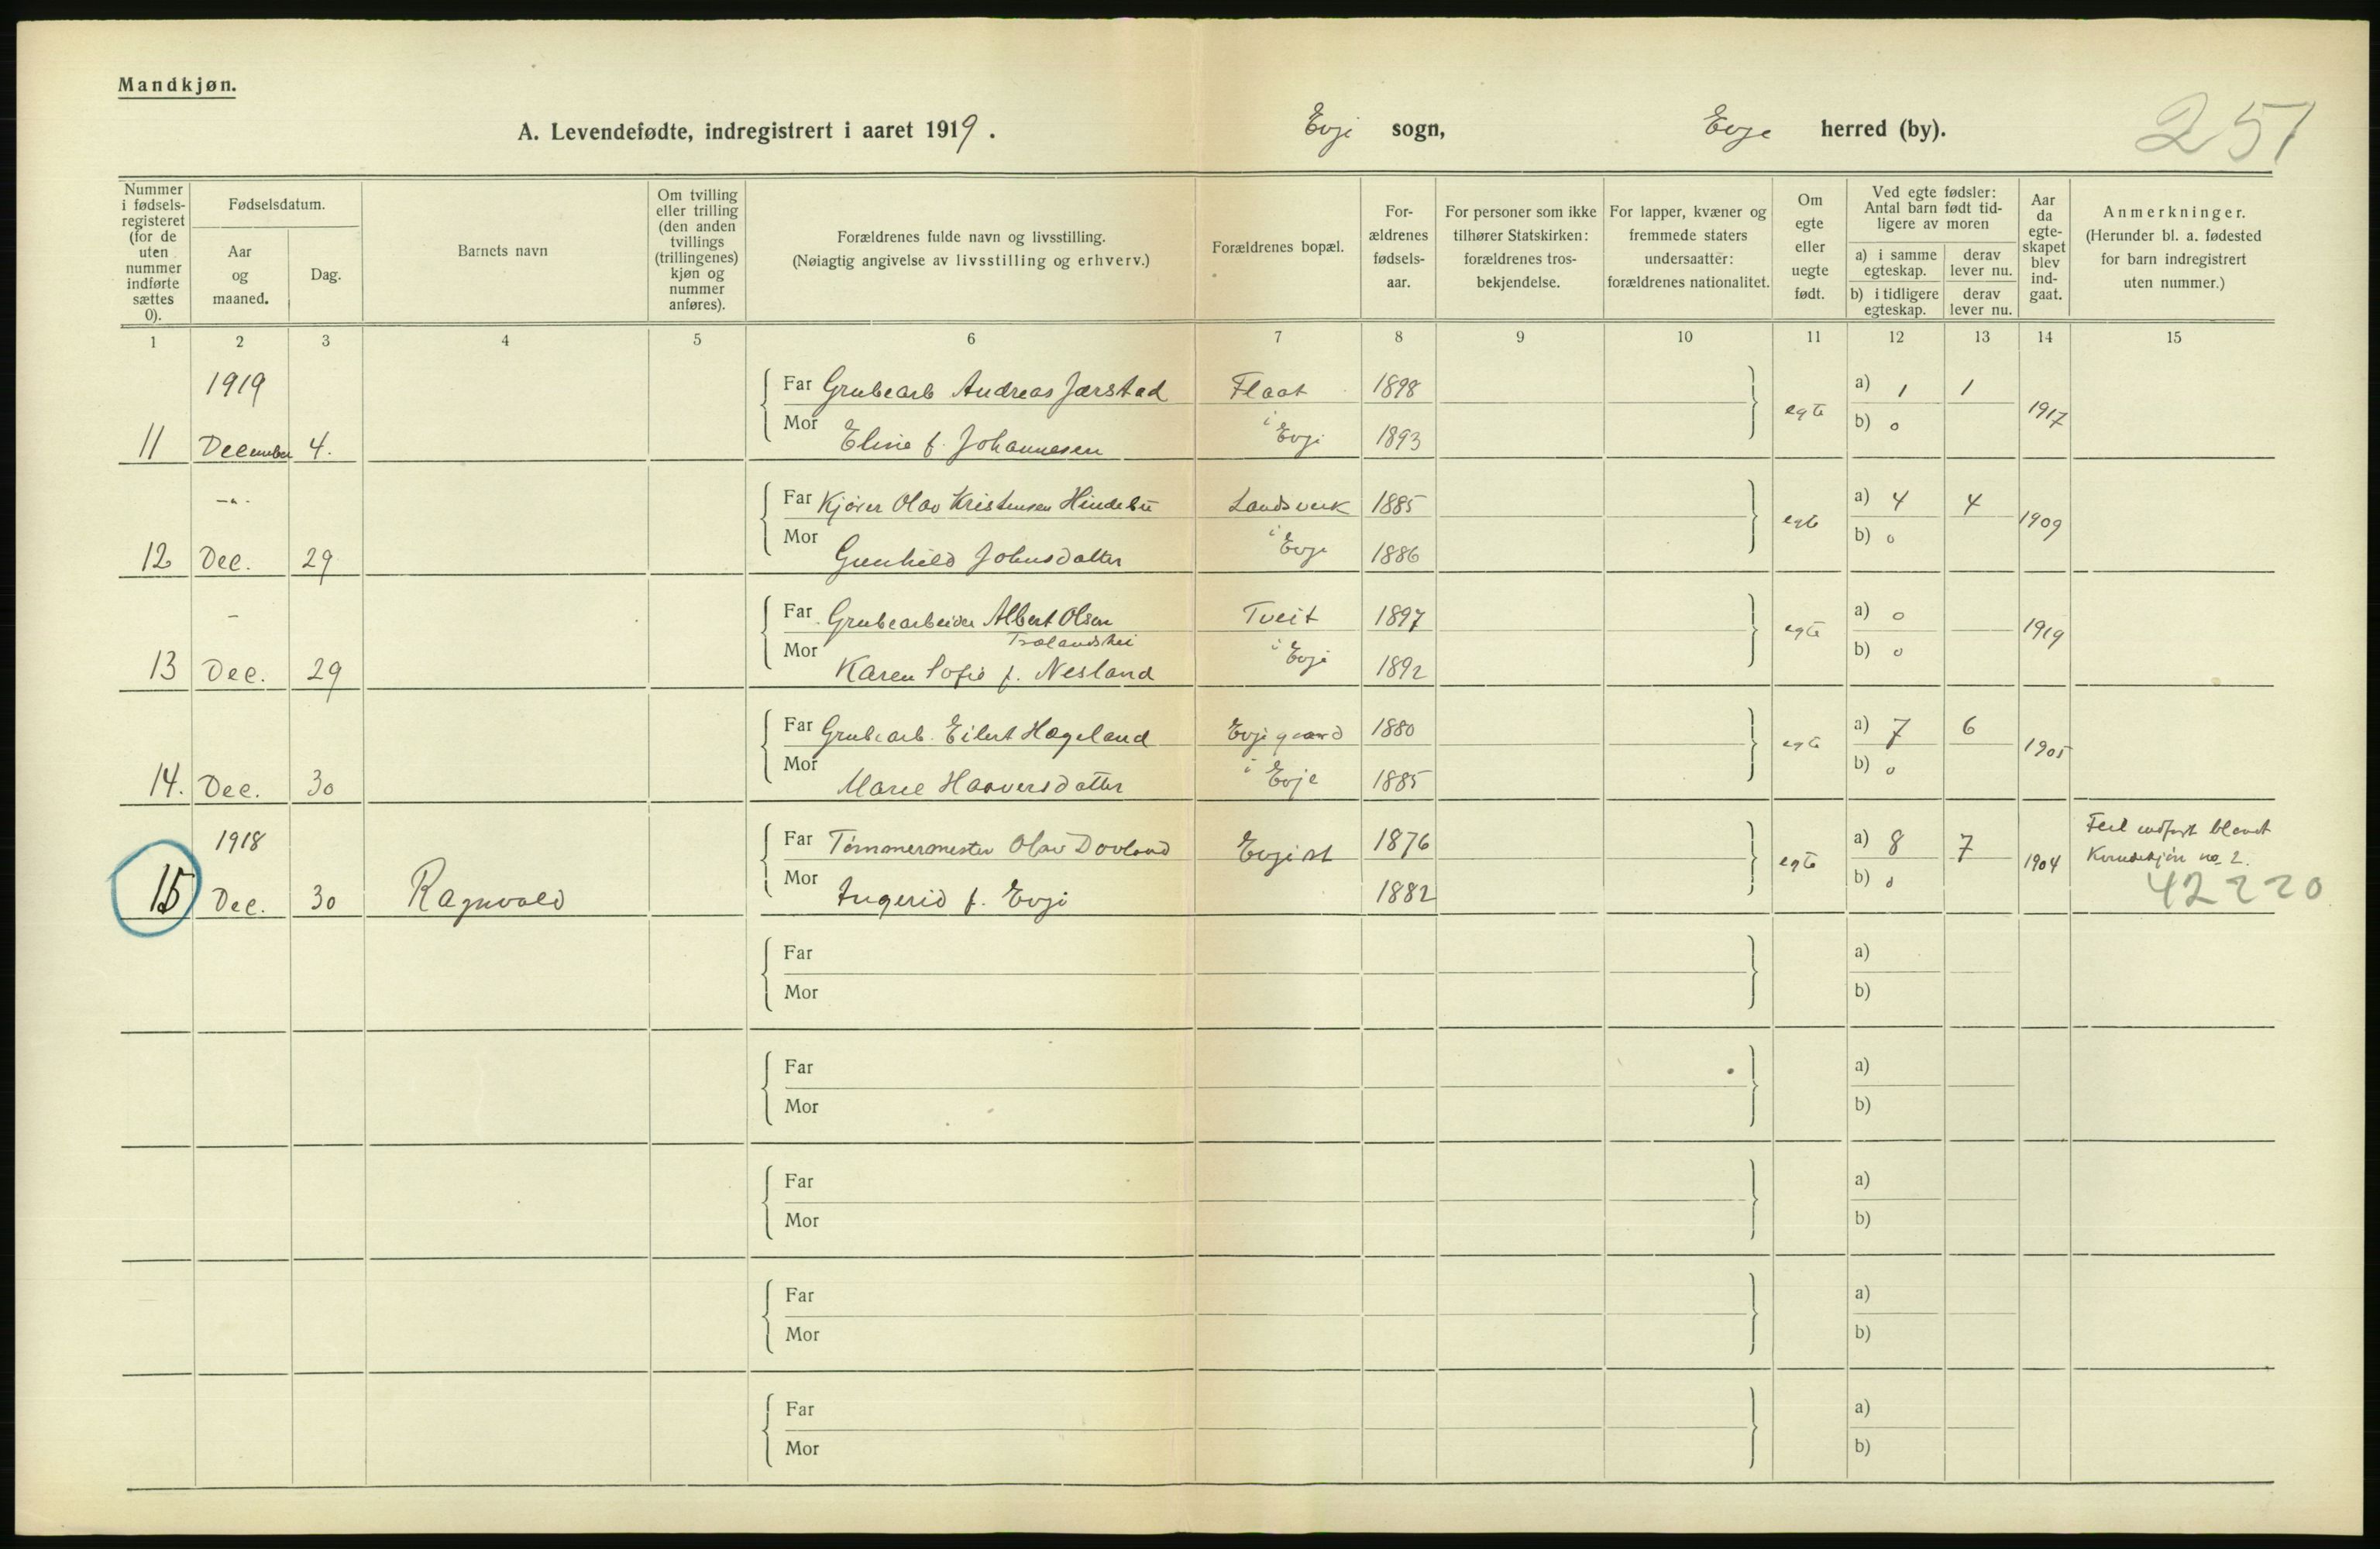 Mandkjøn.
A. Levendefødte, indregistrert i aaret 1919.
Evje sogn,
Evje herred (by).
251
Nummer i fødsels-registeret (for de uten nummer indførte sættes 0).
Fødselsdatum.
Aar og maaned.
Dag.
Barnets navn
Om tvilling eller trilling (den anden tvillings (trillingenes) kjøn og nummer anføres).
Forældrenes fulde navn og livsstilling.
(Nøiagtig angivelse av livsstilling og erhverv.)
Forældrenes bopæl.
For-ældrenes fødsels-aar.
For personer som ikke tilhører Statskirken: forældrenes tros-bekjendelse.
For lapper, kvæner og fremmede staters undersaatter: forældrenes nationalitet.
Om egte eller uegte født.
Ved egte fødsler: Antal barn født tid-ligere av moren
a) i samme egteskap.
derav lever nu.
b) i tidligere egteskap.
derav lever nu.
Aar da egte-skapet blev ind-gaat.
Anmerkninger.
(Herunder bl. a. fødested for barn indregistrert uten nummer.)
1 2 3 4 5 6 7 8 9 10 11 12 13 14 15
1919 Far Grubearb Andreas Jærstad Flaat 1898 a) 1 1
11 December 4. Mor Eline f. Johannesen i Evje 1893 egte b) 0 1917
—"- Far Kjører Olav Kristensen Landsverk 1885 a) 4 4
12 Dec. 29 Mor Gunhild Johnsdatter i Evje 1886 egte b) 0 1909
- Far Grubearbeider Albert Olsen Tveit 1897 a) 0
13 Dec. 29 Mor Karen Sofie f. Nesland i Evje 1892 egte b) 0 1919
Far Grubearb. Eilert Hægeland Evjegaard 1880 a) 7 6
14. Dec. 30 Mor Marie Haaversdatter i Evje 1885 egte b) 0 1905
1918 Far Tømmermester Olav Dovland 1876 a) 8 7 Feil indført blandt
15 Dec. 30 Ragnvald Mor Ingerid f. Evje 1882 egte b) 0 1904 Kvindekjøn no 2.
42220
Far a)
Mor b)
Far a)
Mor b)
Far a)
Mor b)
Far a)
Mor b)
Far a)
Mor b)